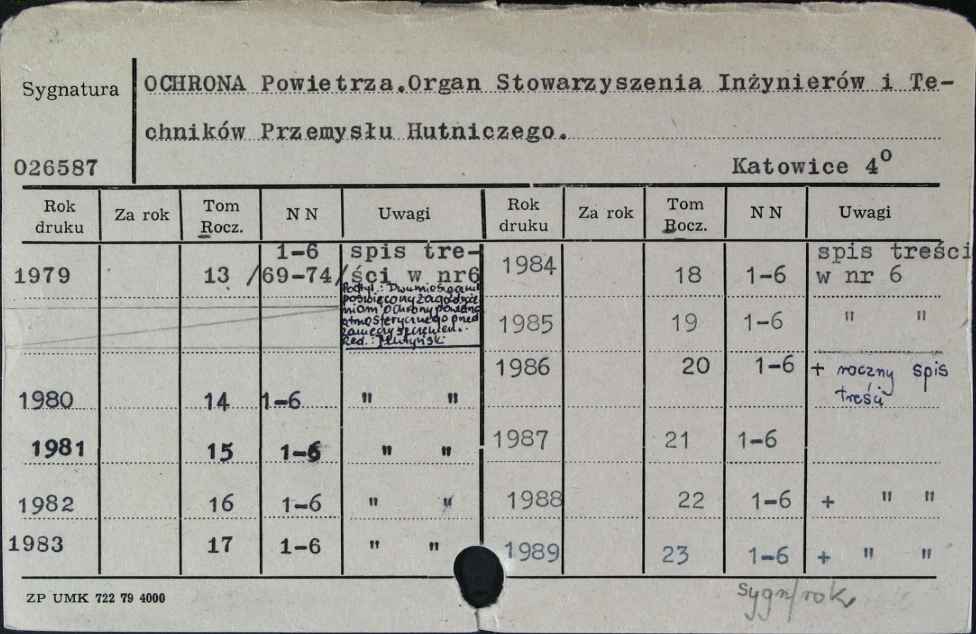 Sygnatura
OCHRONA Powietrza.Organ Stowarzyszenia Inżynierów i Te-
chników Przemysłu Hutniczego.
026587
Katowice 4º
Rok druku Za rok Tom Rocz. N N Uwagi Rok druku Za rok Tom Rocz. N N Uwagi
1979 13 /69-74/ 1-6 spis tre-
ści w nr6
Podtyt.: Dwumiesięcznik
poświęcony zagadnie
niom ochrony powietrza
atmosferycznego przed
zanieczyszczeniem.
Red.:
1980 14 1-6 " "
1981 15 1-6 " "
1982 16 1-6 " "
1983 17 1-6 " "
1984 18 1-6 spis treści
w nr 6
1985 19 1-6 " "
1986 20 1-6 + roczny spis
treści
1987 21 1-6
1988 22 1-6 + " "
1989 23 1-6 + " "
ZP UMK 722 79 4000
sygn/rok